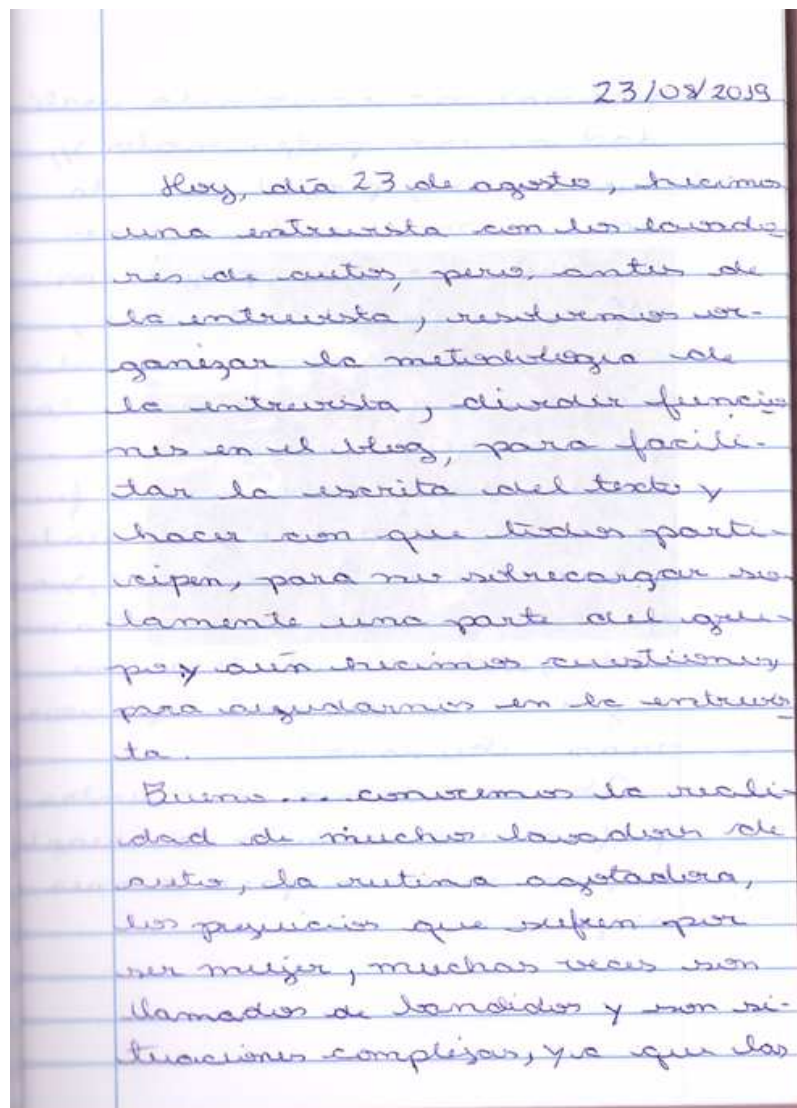 23/08/2019
Hoy, día 23 de agosto, hicimos
una entrevista con los lavado-
res de autos, pero, antes de
la entrevista, resolvemos or-
ganizar la metodologia de
la entrevista, dividir funcio-
nes en el blog, para facili-
tar la escrita del texto y
hacer con que todos parti-
cipen, para no sobrecargar so-
lamente una parte del gru-
po, y aún hicimos cuestiones
para ayudarnos en la entrevis-
ta.
Bueno... conocemos la reali-
dad de muchos lavadores de
auto, la rutina agotadora,
los prejuicios que sufren por
ser mujer, muchas veces son
llamados de bandidos y son si-
tuaciones complejas, ya que las